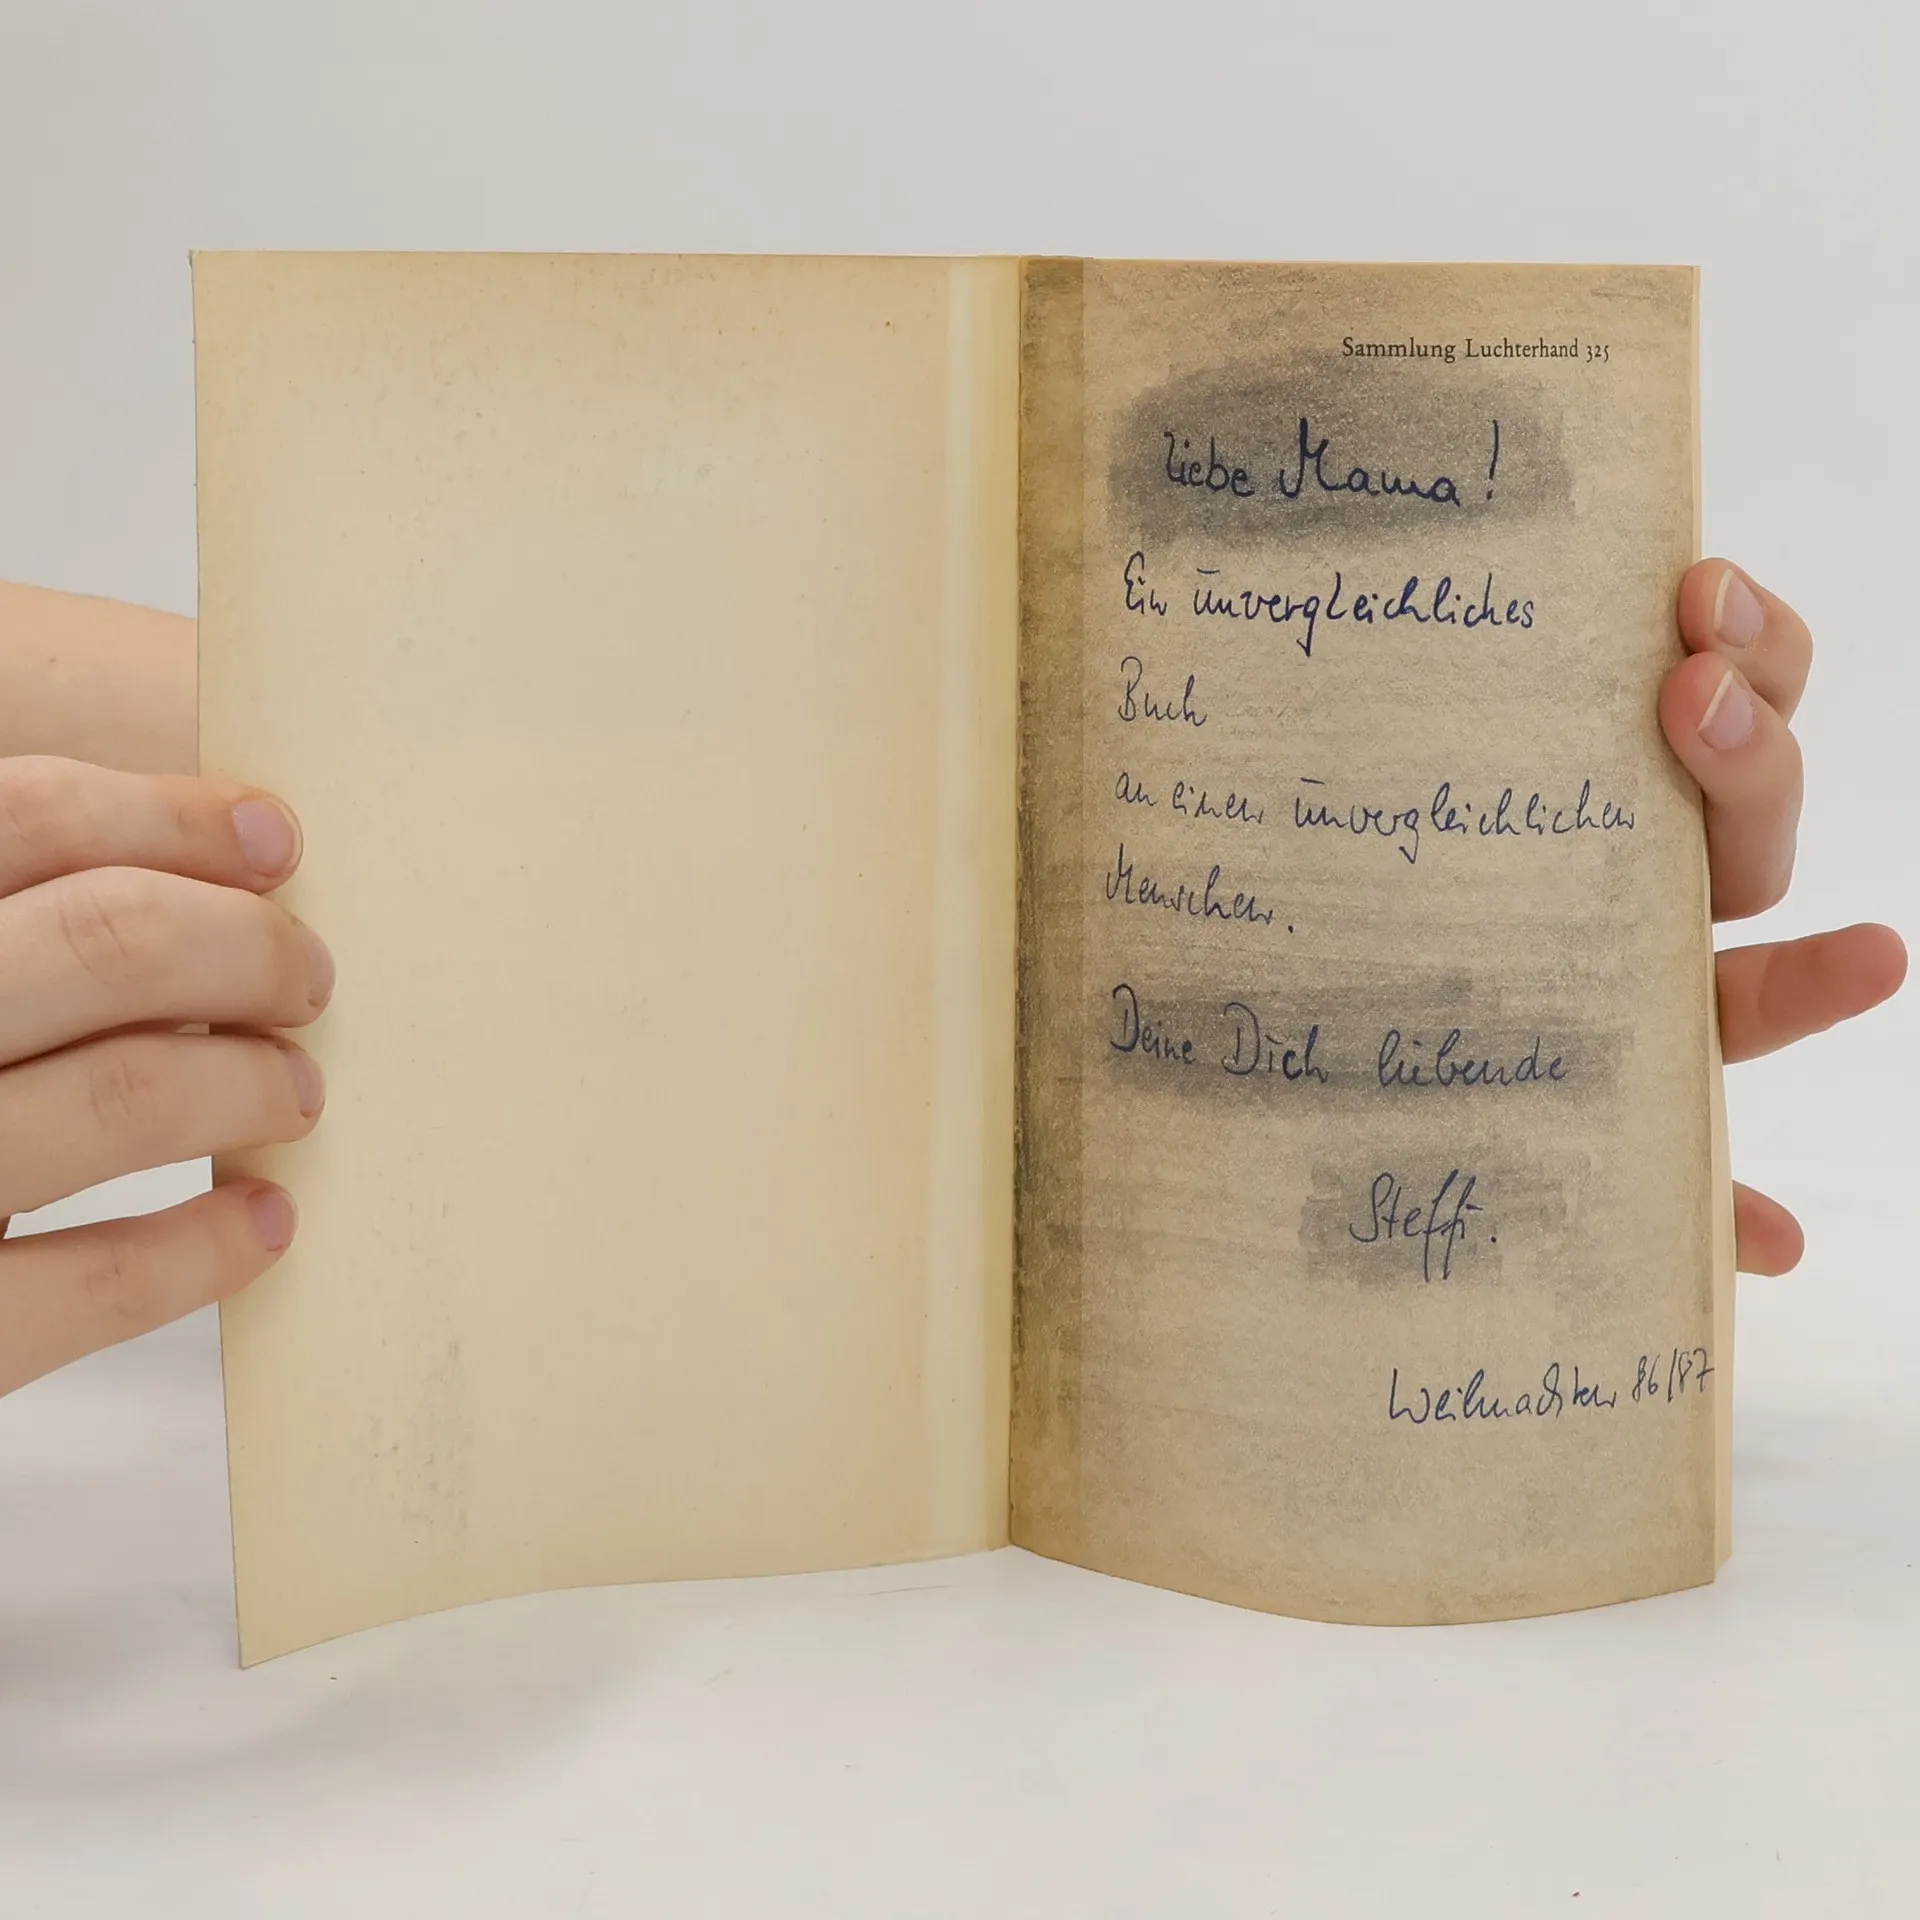 Sammlung Luchterhand 325
Liebe Mama!
Ein unvergleichliches
Buch
an einen unvergleichlichen
Menschen.
Deine Dich liebende
Steffi.
Weihnachten 86/87